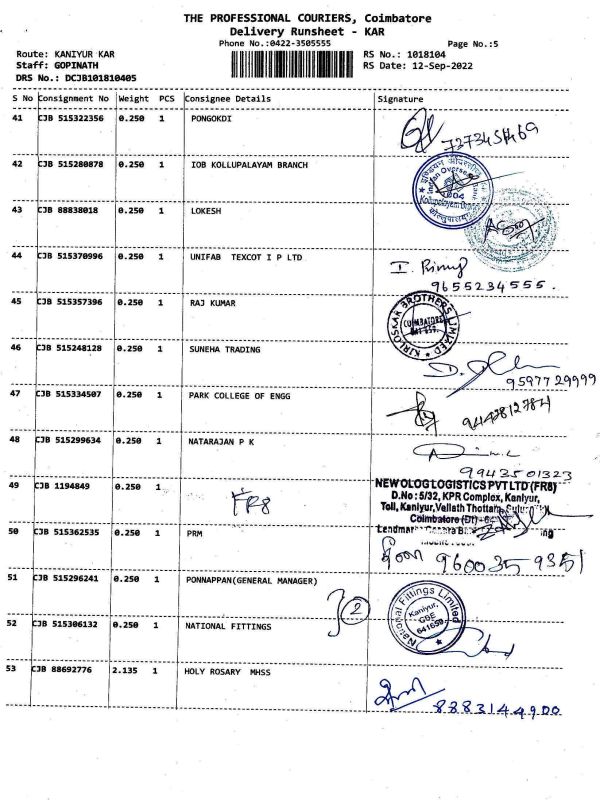 THE PROFESSIONAL COURIERS, Coimbatore
Delivery Runsheet - KAR
Phone No.:0422-3505555 Page No.:5
Route: KANIYUR KAR RS No.: 1018104
Staff: GOPINATH RS Date: 12-Sep-2022
DRS No.: DCJB101810405
S No Consignment No Weight PCS Consignee Details Signature
41 CJB 515322356 0.250 1 PONGOKDI
42 CJB 515280878 0.250 1 IOB KOLLUPALAYAM BRANCH
Indian Overseas Bank
Kollupalayam Branch
43 CJB 88838018 0.250 1 LOKESH
44 CJB 515370996 0.250 1 UNIFAB TEXCOT I P LTD
9655234555.
45 CJB 515357396 0.250 1 RAJ KUMAR
KIRLOSKAR BROTHERS LIMITED
COIMBATORE
46 CJB 515248128 0.250 1 SUNEHA TRADING
9597729999
47 CJB 515334507 0.250 1 PARK COLLEGE OF ENGG
48 CJB 515299634 0.250 1 NATARAJAN P K
9943501323
49 CJB 1194849 0.250 1 FR8
NEWOLOG LOGISTICS PVT LTD (FR8)
D.No: 5/32, KPR Complex, Kaniyur,
Toll, Kaniyur, Vellath Thottam,
Coimbatore (Dt)
50 CJB 515362535 0.250 1 PRM
9600359351
51 CJB 515296241 0.250 1 PONNAPPAN(GENERAL MANAGER)
2
National Fittings Limited
Kaniyur,
CBE
641659
52 CJB 515306132 0.250 1 NATIONAL FITTINGS
53 CJB 88692776 2.135 1 HOLY ROSARY MHSS
8883144900